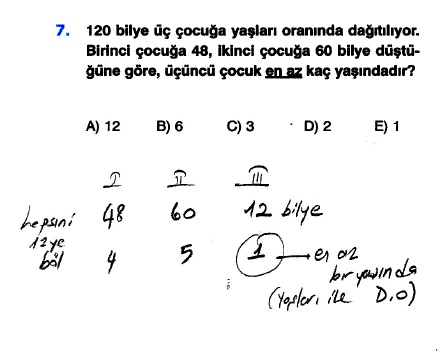 7. 120 bilye üç çocuğa yaşları oranında dağıtılıyor.
Birinci çocuğa 48, ikinci çocuğa 60 bilye düştü-
ğüne göre, üçüncü çocuk en az kaç yaşındadır?
A) 12 B) 6 C) 3 D) 2 E) 1
I II III
hepsini 48 60 12 bilye
12 ye
böl 4 5 1 → en az
bir yaşında
(Yaşları ile D.O)